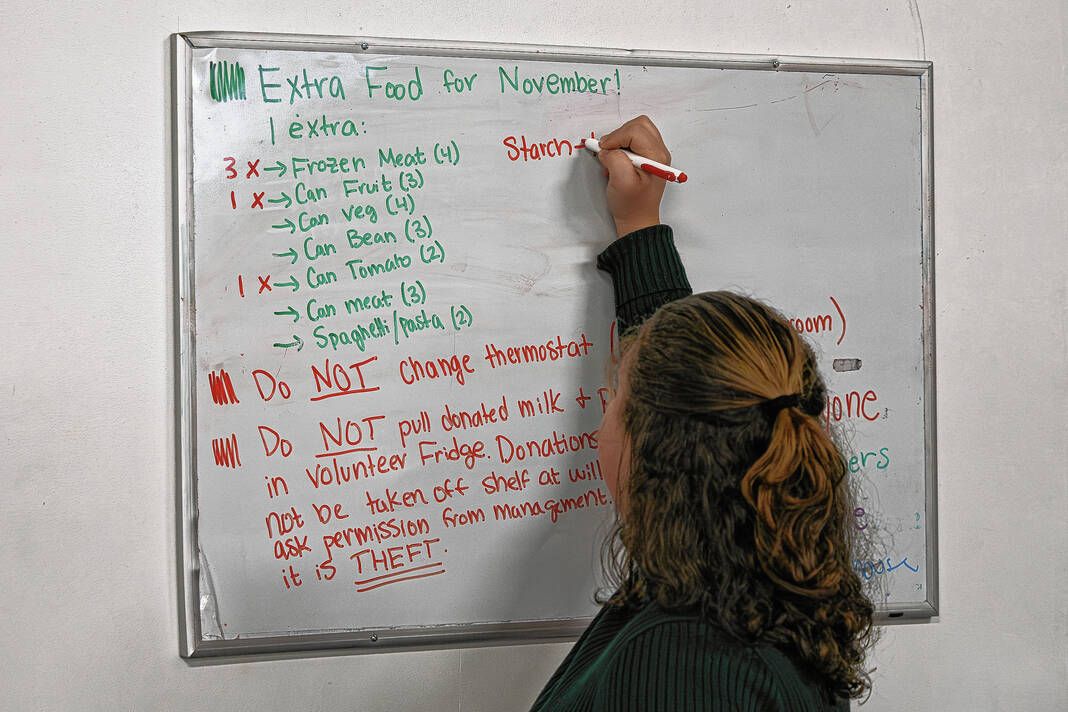 Extra Food for November!
1 extra:
3 x → Frozen Meat (4)
1 x → Can Fruit (3)
→ Can veg (4)
→ Can Bean (3)
1 x → Can Tomato (2)
→ Can meat (3)
→ Spaghelli/pasta (2)
Starch
Do NOT change thermostat ( room)
Do NOT pull donated milk +
in volunteer Fridge. Donations
not be taken off shelf at will
ask permission from management.
it is THEFT.